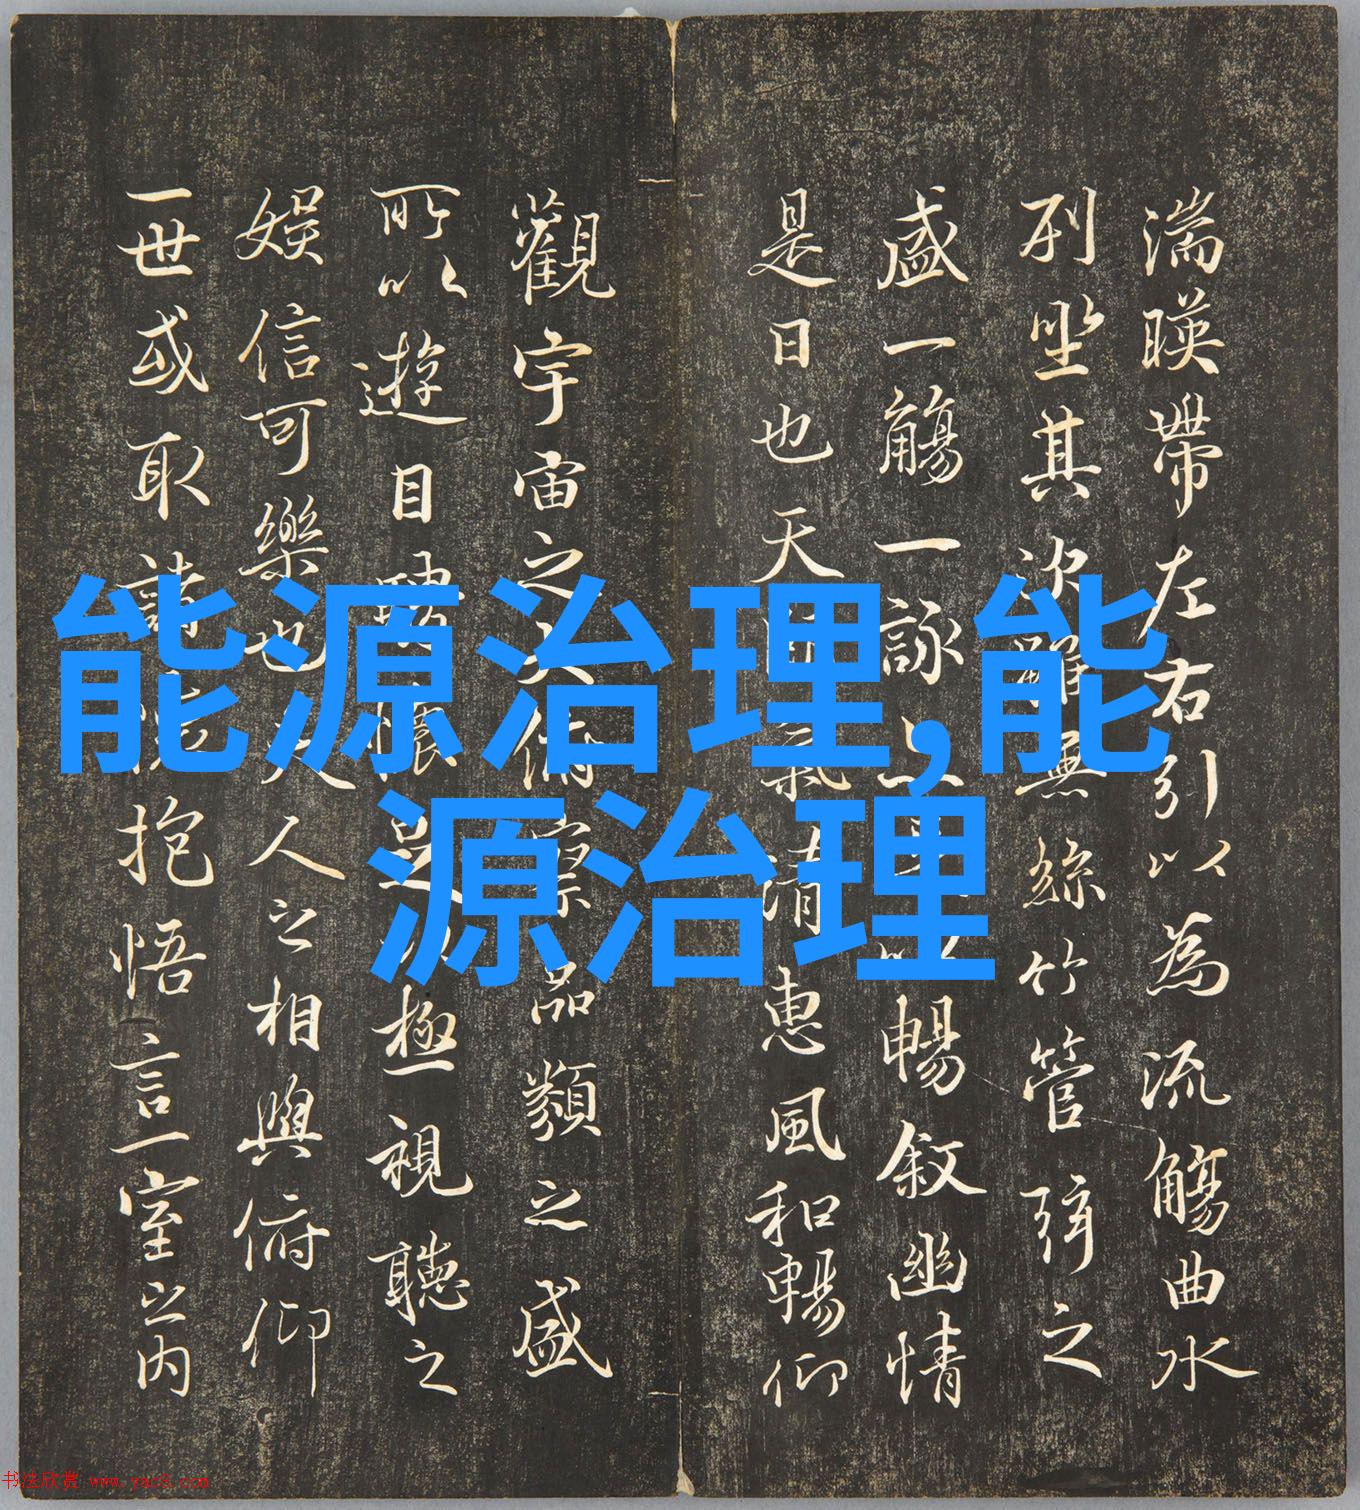 湍暎帶左右引以為流觴曲水
列坐其次雖無絲竹管弦之
盛一觴一詠暢敘幽情
是日也天氣清惠風和暢仰
觀宇宙之大俯察品類之盛
所以遊目騁懷足以極視聽之
娛信可樂也夫人之相與俯仰
一世或取諸懷抱悟言一室之內
能源治理,能
源治理
书法欣赏 www.yac8.com